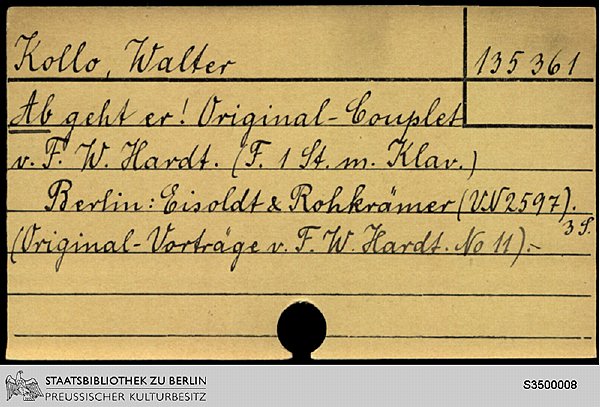 Kollo, Walter
135 361
Ab geht er! Original-Couplet
v. F. W. Hardt. (F. 1 St. m. Klav.)
Berlin: Eisoldt & Rohkrämer (VN 2597).
3 S.
(Original-Vorträge v. F. W. Hardt. No 11).-
STAATSBIBLIOTHEK ZU BERLIN
PREUSSISCHER KULTURBESITZ
S3500008